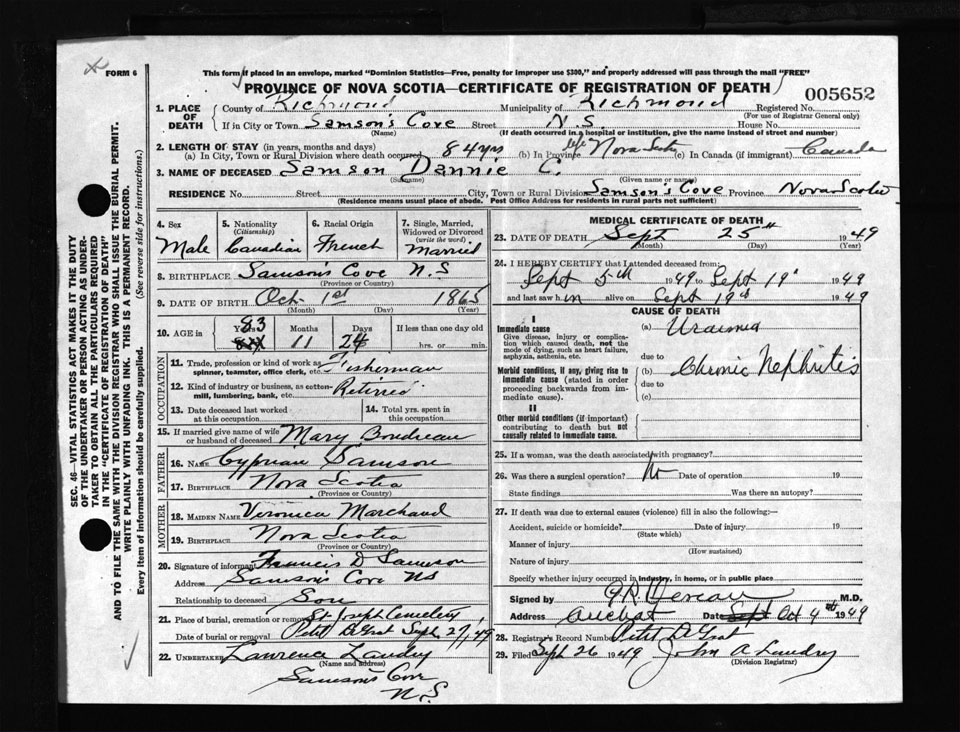 FORM 6
This form if placed in an envelope, marked "Dominion Statistics—Free, penalty for improper use $300," and properly addressed will pass through the mail "FREE"
PROVINCE OF NOVA SCOTIA—CERTIFICATE OF REGISTRATION OF DEATH
005652
1. PLACE OF DEATH
County of Richmond Municipality of Richmond Registered No.
(For use of Registrar General only)
If in City or Town Samson's Cove Street N.S. House No.
(Name) (If death occurred in a hospital or institution, give the name instead of street and number)
2. LENGTH OF STAY (in years, months and days)
(a) In City, Town or Rural Division where death occurred 84 yrs (b) In Province life Nova Scotia (c) In Canada (if immigrant) Canada
3. NAME OF DECEASED Samson Dannie C.
(Surname) (Given name or names)
RESIDENCE No. Street City, Town or Rural Division Samson's Cove Province Nova Scotia
(Residence means usual place of abode. Post Office Address for residents in rural parts not sufficient)
4. Sex Male
5. Nationality (Citizenship) Canadian
6. Racial Origin French
7. Single, Married, Widowed or Divorced (write the word) Married
8. BIRTHPLACE Samson's Cove N.S
(Province or Country)
9. DATE OF BIRTH Oct 1st 1865
(Month) (Day) (Year)
10. AGE in Years 83 Months 11 Days 24 If less than one day old
hrs. or min.
OCCUPATION
11. Trade, profession or kind of work as spinner, teamster, office clerk, etc. Fisherman
12. Kind of industry or business, as cotton-mill, lumbering, bank, etc. Retired
13. Date deceased last worked at this occupation
14. Total yrs. spent in this occupation
15. If married give name of wife or husband of deceased Mary Boudreau
FATHER
16. NAME Cyprian Samson
17. BIRTHPLACE Nova Scotia
(Province or Country)
MOTHER
18. MAIDEN NAME Veronica Marchand
19. BIRTHPLACE Nova Scotia
(Province or Country)
20. Signature of informant Francis D Samson
Address Samson's Cove NS
Relationship to deceased Son
21. Place of burial, cremation or removal St Joseph Cemetery
Petit DeGrat
Date of burial or removal Sept 27/49
22. UNDERTAKER Lawrence Landry
(Name and address)
Samson's Cove
N.S
MEDICAL CERTIFICATE OF DEATH
23. DATE OF DEATH Sept 25th 1949
(Month) (Day) (Year)
24. I HEREBY CERTIFY that I attended deceased from:
Sept 5th 1949 to Sept 19th 1949
and last saw him alive on Sept 19th 1949
CAUSE OF DEATH
I
Immediate cause
Give disease, injury or complication which caused death, not the mode of dying, such as heart failure, asphyxia, asthenia, etc.
(a) Uraemia
due to
Morbid conditions, if any, giving rise to immediate cause (stated in order proceeding backwards from immediate cause).
(b) Chronic Nephritis
due to
(c)
II
Other morbid conditions (if important) contributing to death but not causally related to immediate cause.
25. If a woman, was the death associated with pregnancy?
26. Was there a surgical operation? No Date of operation 19
State findings Was there an autopsy?
27. If death was due to external causes (violence) fill in also the following:—
Accident, suicide or homicide? Date of injury 19
(State which)
Manner of injury
(How sustained)
Nature of injury
Specify whether injury occurred in industry, in home, or in public place
Signed by M.D.
Address Arichat Date Sept Oct 4th 1949
28. Registrar's Record Number Petit DeGrat
29. Filed Sept 26 1949 John A Landry
(Division Registrar)
SEC. 46—VITAL STATISTICS ACT MAKES IT THE DUTY
OF THE UNDERTAKER OR PERSON ACTING AS UNDER-
TAKER TO OBTAIN ALL THE PARTICULARS REQUIRED
IN THE "CERTIFICATE OF REGISTRATION OF DEATH"
AND TO FILE THE SAME WITH THE DIVISION REGISTRAR WHO SHALL ISSUE THE BURIAL PERMIT.
WRITE PLAINLY WITH UNFADING INK. THIS IS A PERMANENT RECORD.
Every item of Information should be carefully supplied. (See reverse side for instructions.)